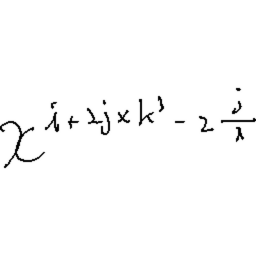 x^{i+2j×k^3-2\frac{j}{λ}}